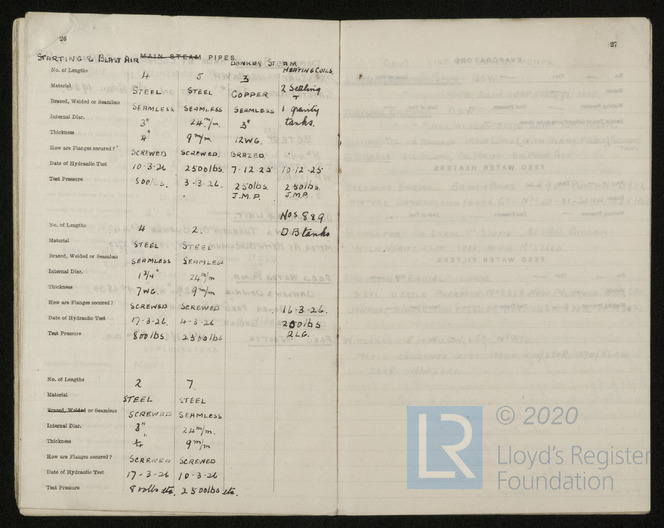 26
STARTING & BLAST AIR MAIN STEAM PIPES. DONKEY STEAM HEATING COILS
No. of Lengths 4 5 3
Material STEEL STEEL COPPER 2 Settling
Brazed, Welded or Seamless SEAMLESS SEAMLESS SEAMLESS 1 gravity
Internal Diar. 3" 24 m/m. 3" tanks.
Thickness 9 m/m 12WG.
How are Flanges secured? SCREWED SCREWED. BRAZED
Date of Hydraulic Test 10-3-26 2500lbs 7-12-25 10-12-25
Test Pressure 800lbs. 3-3-26 250lbs 250lbs
J.M.P. J.M.P.
Nos 8 & 9
No. of Lengths 4 2. D B tanks
Material STEEL STEEL
Brazed, Welded or Seamless SEAMLESS SEAMLESS
Internal Diar. 1 3/4" 24 m/m
Thickness 7WG. 9 m/m
How are Flanges secured? SCREWED SCREWED 16-3-26.
Date of Hydraulic Test 17-3-26 4-3-26 200lbs
Test Pressure 800lbs 2500lbs
No. of Lengths 2 7
Material STEEL STEEL
Brazed, Welded or Seamless SCREWED SEAMLESS
Internal Diar. 3" 24 m/m.
Thickness 9 m/m
How are Flanges secured? SCREWED SCREWED
Date of Hydraulic Test 17-3-26 10-3-26
Test Pressure 2500lbs
27
© 2020
LR
Lloyd's Register
Foundation